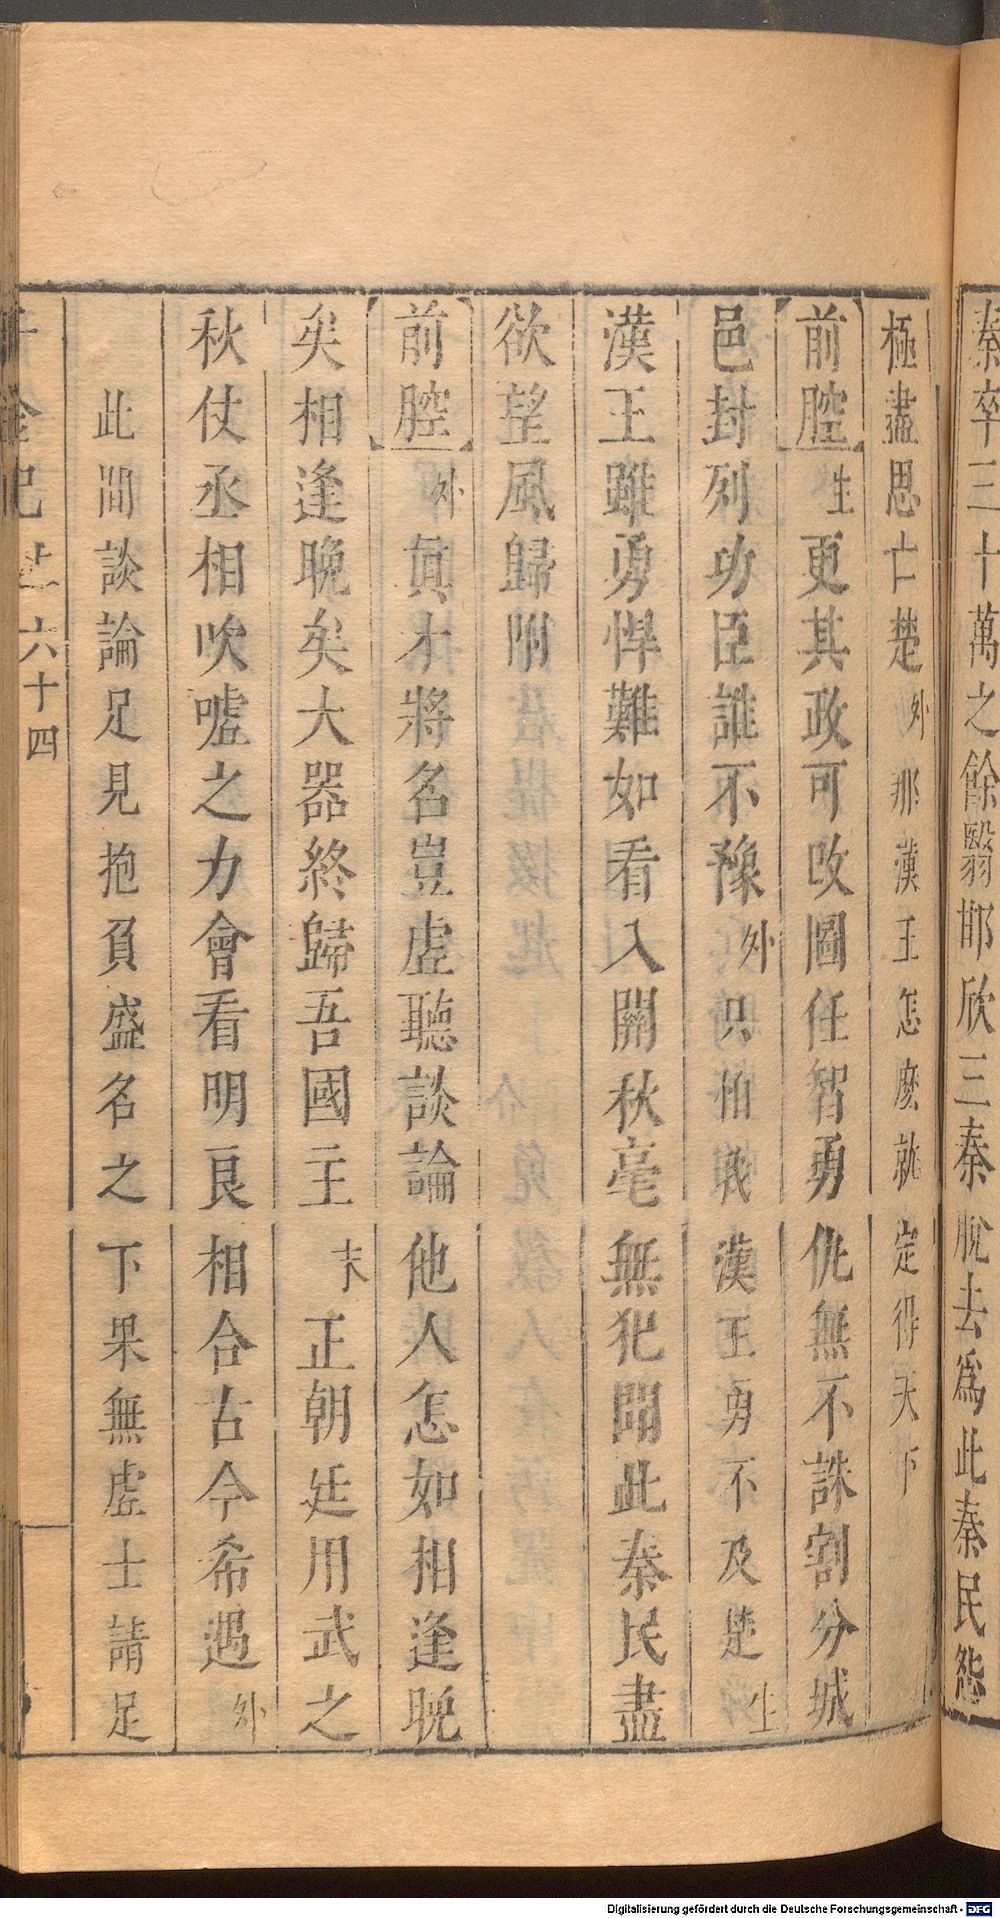 秦卒三十萬之餘翳邯欣三秦脫去爲此秦民怨
極盡思亡楚外那漢王怎麽就定得天下
前腔生更其政可改圖任智勇仇無不誅割分城
邑封列功臣誰不豫外只怕戰漢王勇不及楚生
漢王雖勇悍難如看入關秋毫無犯聞此秦民盡
欲望風歸附
前腔外眞才將名豈虛聽談論他人怎如相逢晚
矣相逢晚矣大器終歸吾國主末正朝廷用武之
秋仗丞相吹噓之力會看明良相合古今希遇外
此間談論足見抱負盛名之下果無虛士請足
千金記 上 六十四
Digitalisierung gefördert durch die Deutsche Forschungsgemeinschaft - DFG